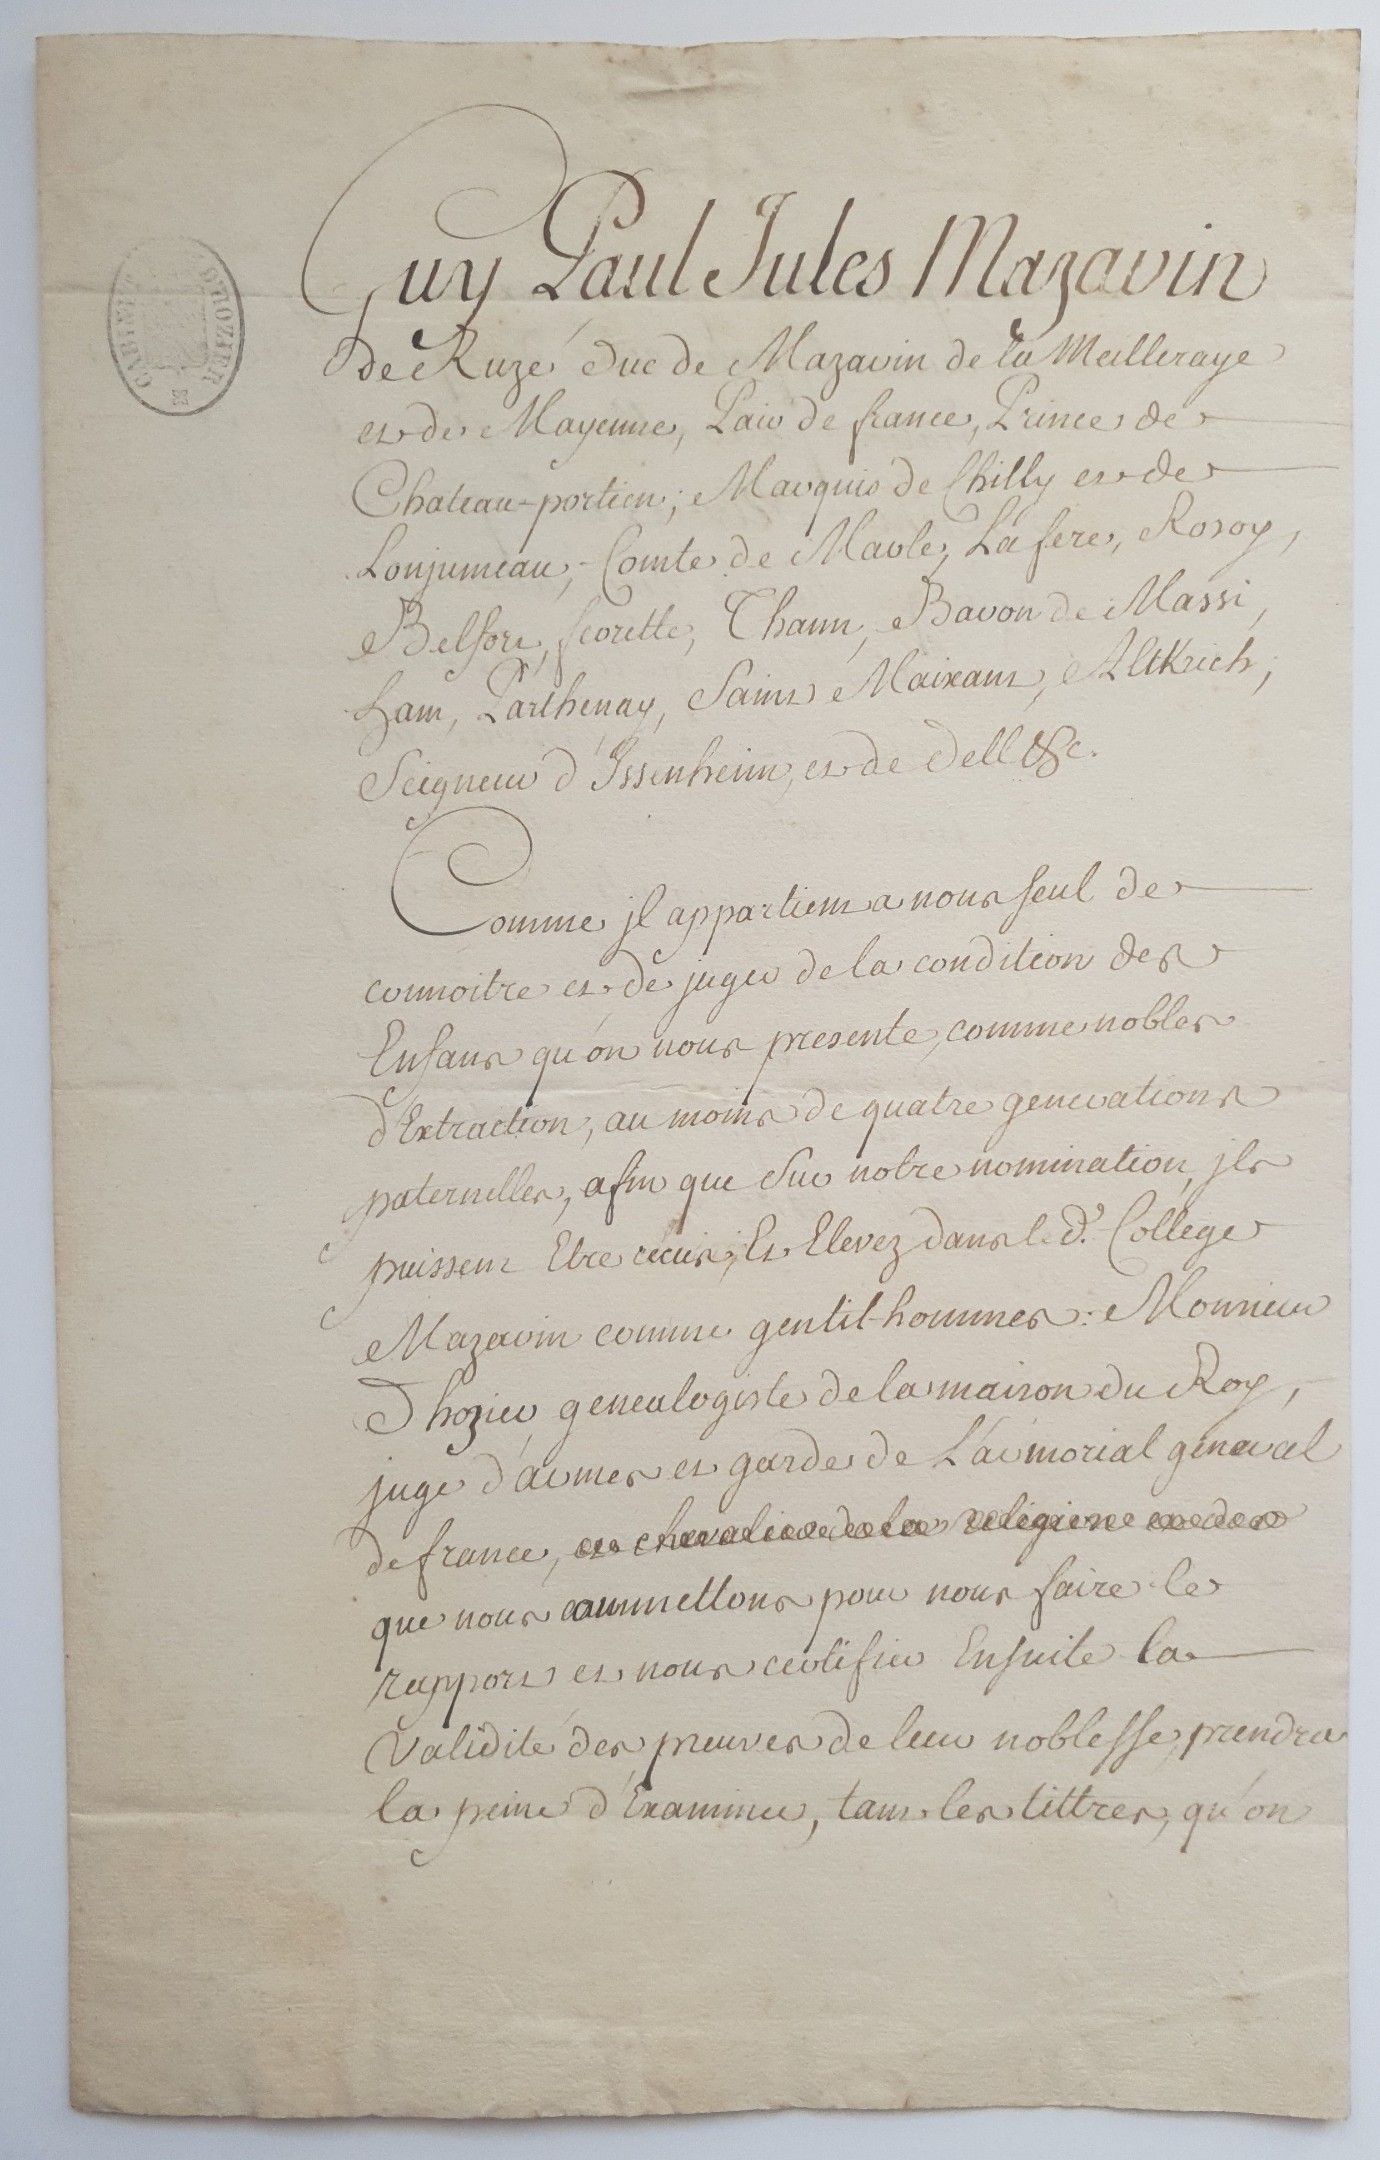 CABINET D'HOZIER
Guy Paul Jules Mazarin
de Ruzé duc de Mazarin de la Meilleraye
et de Mayenne, Pair de france, Prince de
Chateau-portien, Marquis de Chilly et de
Lonjumeau, Comte de Marle, La fere, Rosoy,
Belfort, ferette, Thann, Baron de Massi,
ham, Parthenay, Saint Maixant, Altkirch,
Seigneur d'Issenheim, et de dell &c.
Comme jl appartient a nous seul de
connoitre et de juger de la condition des
Enfans qu'on nous presente, comme nobles
d'Extraction, au moins de quatre generations
paternelles, afin que sur notre nomination, jls
puissent Etre recus, Et Elevez dans le d. College
Mazarin comme gentil-hommes: Monsieur
Dhozier, genealogiste de la maison du Roy,
juge d'armes et garde de L'armorial general
de france, et chevalier de la religion
que nous commettons pour nous faire le
rapport et nous certifier Ensuite la
validité des preuves de leur noblesse, prendra
la peine d'Examiner, tant les tittres, qu'on